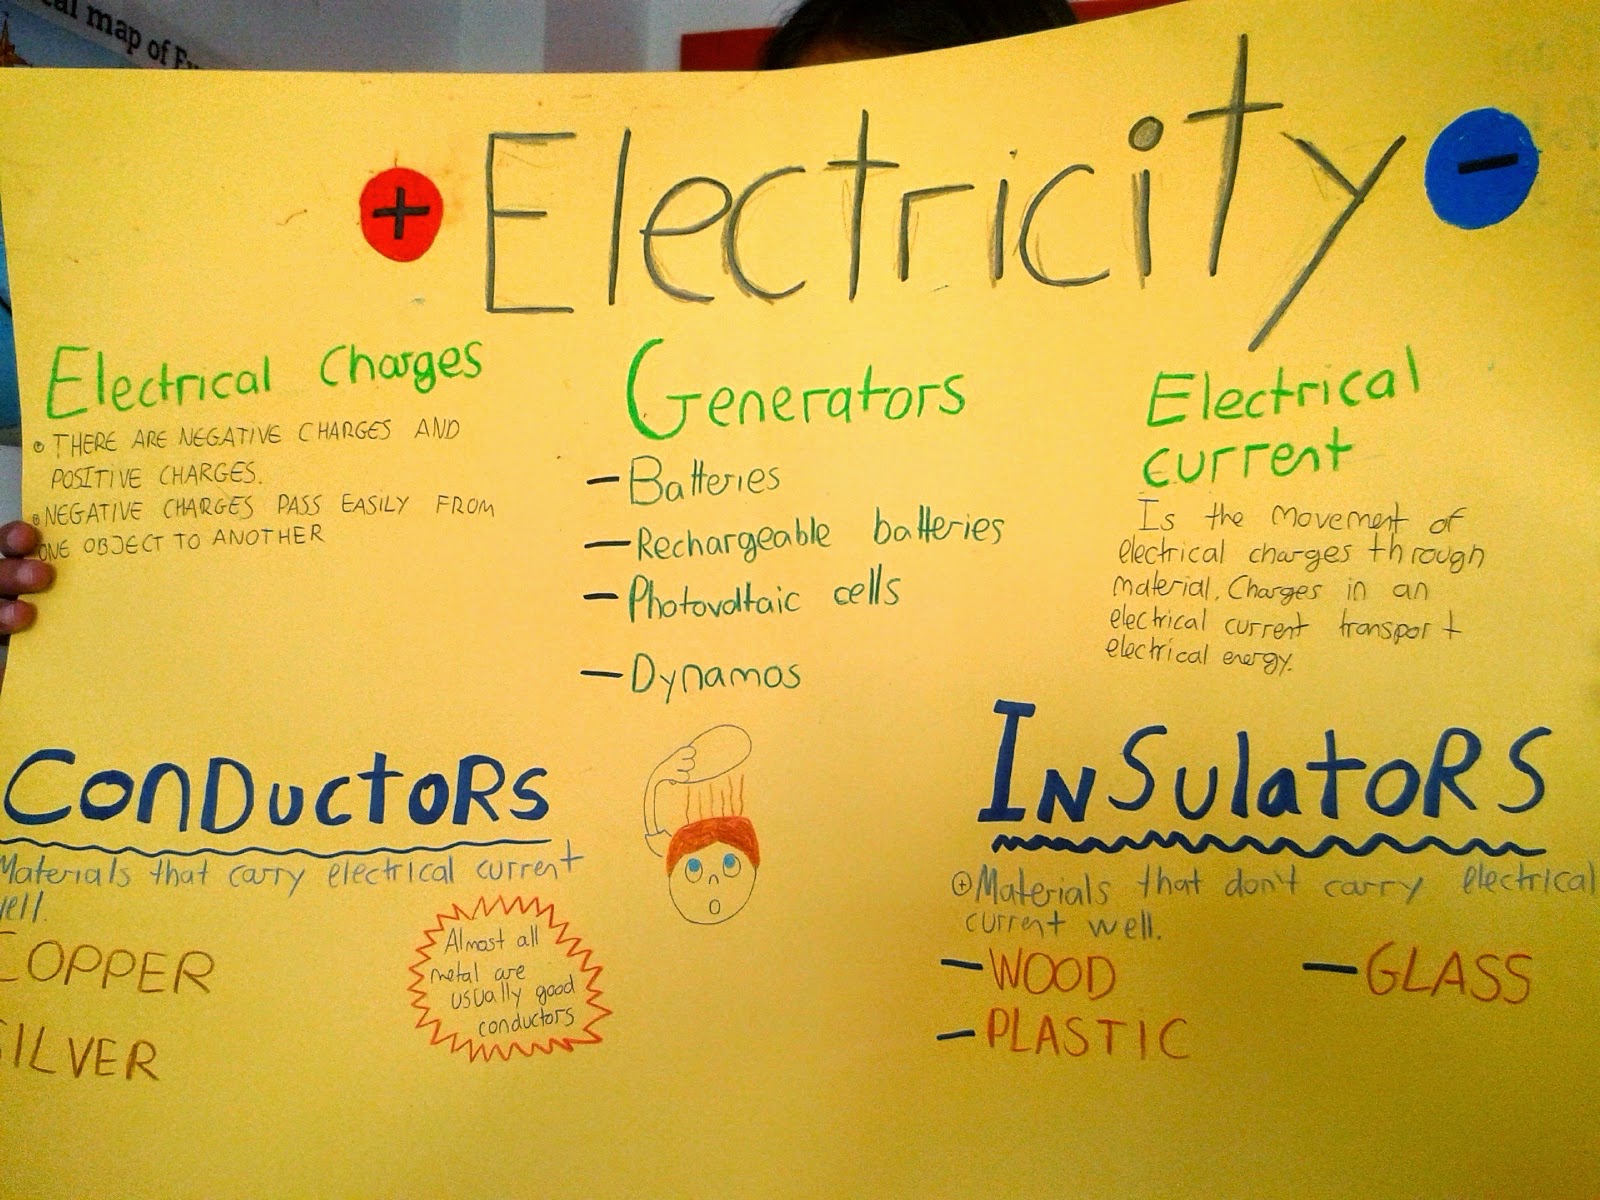 al map of
+ Electricity −
Electrical charges
THERE ARE NEGATIVE CHARGES AND
POSITIVE CHARGES.
NEGATIVE CHARGES PASS EASILY FROM
ONE OBJECT TO ANOTHER
Generators
- Batteries
- Rechargeable batteries
- Photovoltaic cells
- Dynamos
Electrical
current
Is the movement of
electrical charges through
material. Charges in an
electrical current transport
electrical energy.
CONDUCTORS
Materials that carry electrical current
well.
COPPER
SILVER
Almost all
metal are
usually good
conductors
INSULATORS
+ Materials that don't carry electrical
current well.
- WOOD - GLASS
- PLASTIC